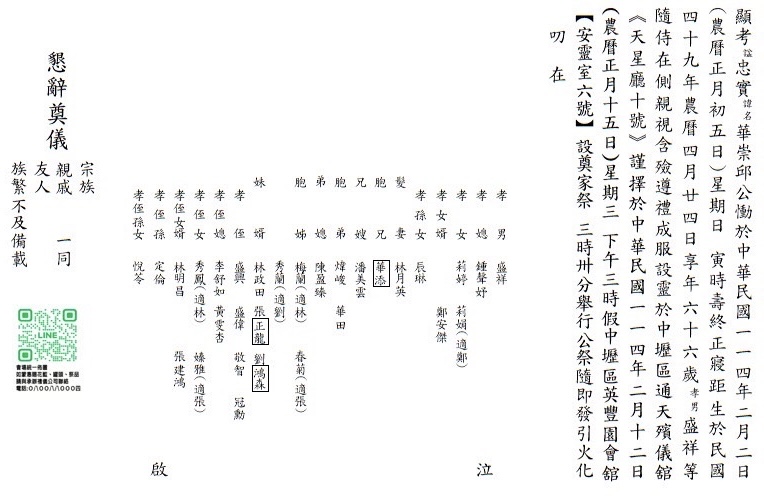 顯考諡忠實諱名華崇邱公慟於中華民國一一四年二月二日
(農曆正月初五日)星期日 寅時壽終正寢距生於民國
四十九年農曆四月廿四日享年六十六歲孝男盛祥等
隨侍在側親視含殮遵禮成服設靈於中壢區通天殯儀館
《天星廳十號》謹擇於中華民國一一四年二月十二日
(農曆正月十五日)星期三 下午三時假中壢區英豐園會館
【安靈室六號】設奠家祭 三時卅分舉行公祭隨即發引火化
叨在
泣
孝男 盛祥
孝媳 鍾聲妤
孝女 莉婷 莉娟(適鄭)
孝女婿 鄭安傑
孝孫女 辰琳
髮妻 林月英
胞兄 華添
兄嫂 潘美雲
胞弟 煒峻 華田
弟媳 陳盈臻
胞姊 梅蘭(適林) 春菊(適張)
秀蘭(適劉)
妹婿 林政田 張正龍 劉鴻森
孝侄 盛興 盛偉 敬智 冠勳
孝侄媳 李舒如 黃雯杏
孝侄女 秀鳳(適林) 嫀雅(適張)
孝侄女婿 林明昌 張建鴻
孝侄孫 定倫
孝侄孫女 悅苓
啟
懇辭奠儀
宗族
親戚 一同
友人
族繁不及備載
LINE
會場統一佈置
如蒙惠賜花籃、罐頭、祭品
請與承辦禮儀公司聯絡